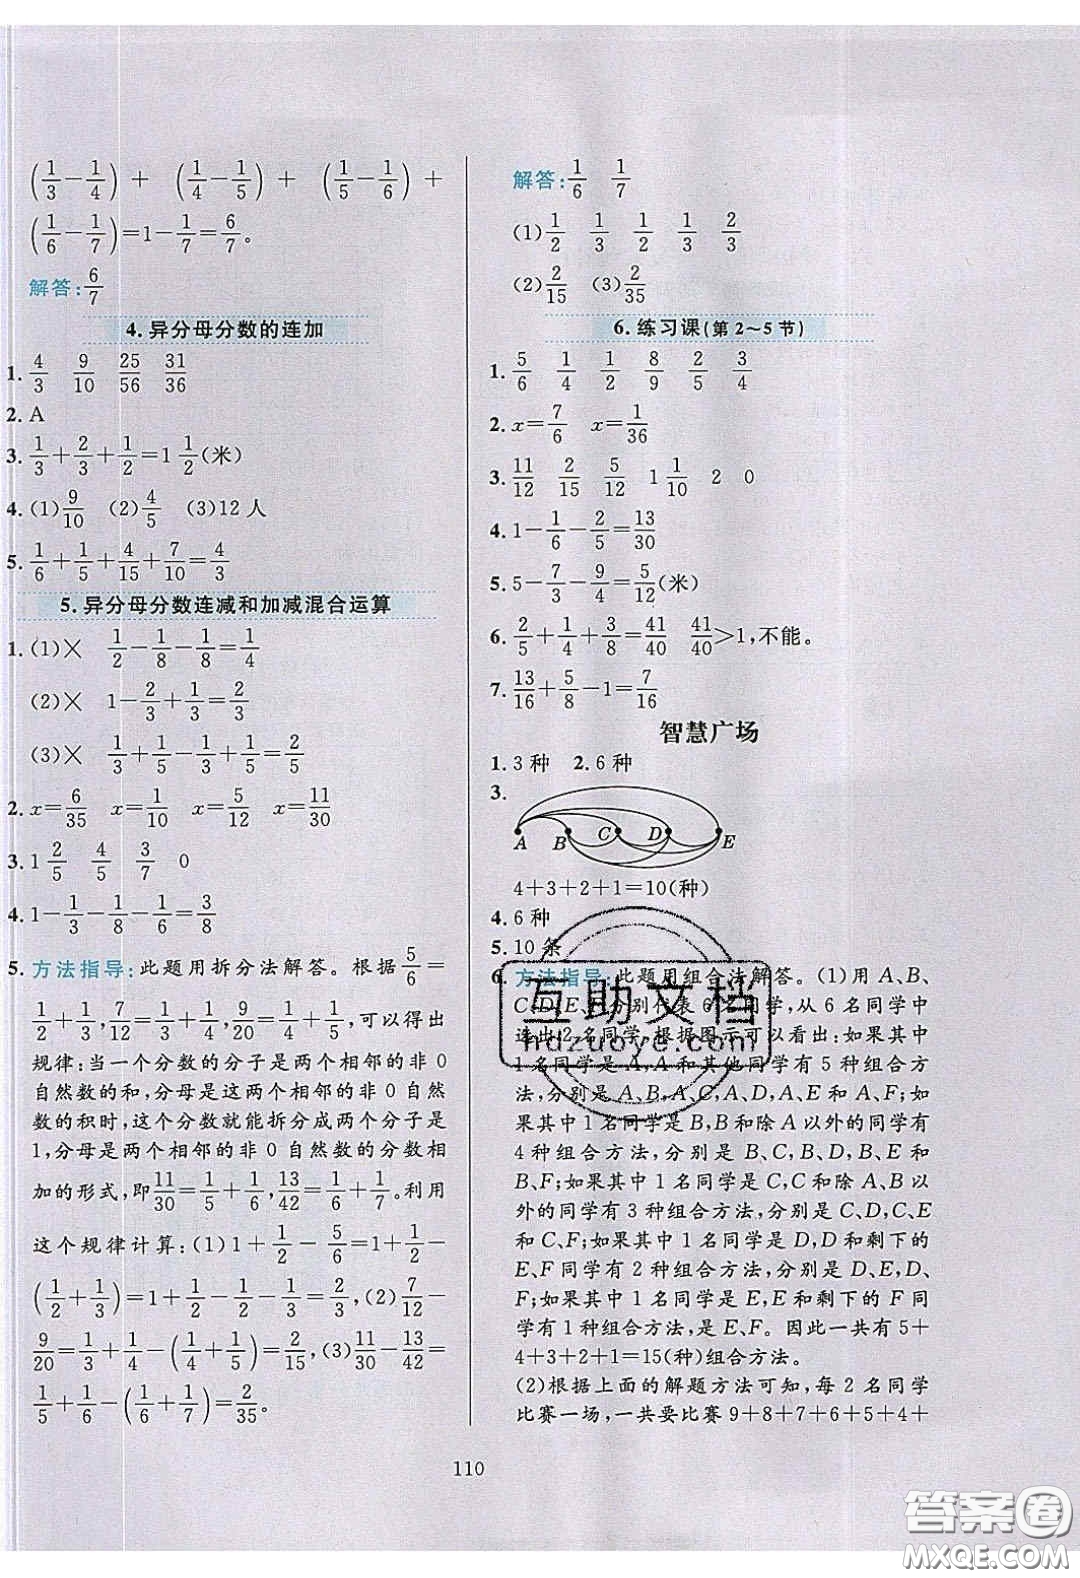 (1/3－1/4) + (1/4－1/5) + (1/5－1/6) +
(1/6－1/7)=1－1/7=6/7。
解答:6/7
4. 异分母分数的连加
1. 4/3 9/10 25/56 31/36
2. A
3. 1/3+2/3+1/2=1 1/2(米)
4. (1)9/10 (2)4/5 (3)12人
5. 1/6+1/5+4/15+7/10=4/3
5. 异分母分数连减和加减混合运算
1. (1)× 1/2－1/8－1/8=1/4
(2)× 1－2/3+1/3=2/3
(3)× 1/3+1/5－1/3+1/5=2/5
2. x=6/35 x=1/10 x=5/12 x=11/30
3. 1 2/5 4/5 3/7 0
4. 1－1/3－1/8－1/6=3/8
5. 方法指导:此题用拆分法解答。根据5/6=
1/2+1/3,7/12=1/3+1/4,9/20=1/4+1/5,可以得出
规律:当一个分数的分子是两个相邻的非0
自然数的和,分母是这两个相邻的非0自然
数的积时,这个分数就能拆分成两个分子是
1,分母是两个相邻的非0自然数的分数相
加的形式,即11/30=1/5+1/6,13/42=1/6+1/7。利用
这个规律计算:(1)1+1/2－5/6=1+1/2－
(1/2+1/3)=1+1/2－1/2－1/3=2/3,(2)7/12－
9/20=1/3+1/4－(1/4+1/5)=2/15,(3)11/30－13/42=
1/5+1/6－(1/6+1/7)=2/35。
解答:1/6 1/7
(1)1/2 1/3 1/2 1/3 2/3
(2)2/15 (3)2/35
6. 练习课(第2～5节)
1. 5/6 1/4 1/2 8/9 2/5 3/4
2. x=7/6 x=1/36
3. 11/12 2/15 5/12 1 1/10 2 0
4. 1－1/6－2/5=13/30
5. 5－7/3－9/4=5/12(米)
6. 2/5+1/4+3/8=41/40 41/40>1,不能。
7. 13/16+5/8－1=7/16
智慧广场
1. 3种 2. 6种
3.
A B C D E
4+3+2+1=10(种)
4. 6种
5. 10条
6. 方法指导:此题用组合法解答。(1)用A、B、
C、D、E、F分别代表6名同学,从6名同学中
选出2名同学,根据图示可以看出:如果其中
1名同学是A,A和其他同学有5种组合方
法,分别是A、B,A、C,A、D,A、E和A、F;如
果其中1名同学是B,B和除A以外的同学有
4种组合方法,分别是B、C,B、D,B、E和
B、F;如果其中1名同学是C,C和除A、B以
外的同学有3种组合方法,分别是C、D,C、E
和C、F;如果其中1名同学是D,D和剩下的
E、F同学有2种组合方法,分别是D、E,D、
F;如果其中1名同学是E,E和剩下的F同
学有1种组合方法,是E、F。因此一共有5+
4+3+2+1=15(种)组合方法。
(2)根据上面的解题方法可知,每2名同学
比赛一场,一共要比赛9+8+7+6+5+4+
110
互助文档
hdzuoye.com
答案圈
MXQE.COM